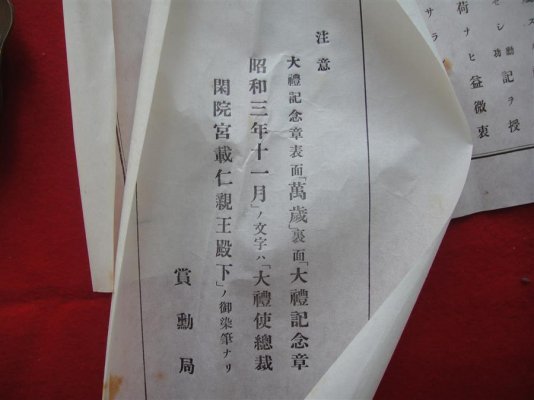 注意
大禮記念章表面「萬歲」裏面「大禮記念章
昭和三年十一月」ノ文字ハ「大禮使總裁
閑院宮載仁親王殿下」ノ御染筆ナリ
賞勳局
授
セシ勳功記ヲ
荷ナヒ益微衷
サラ